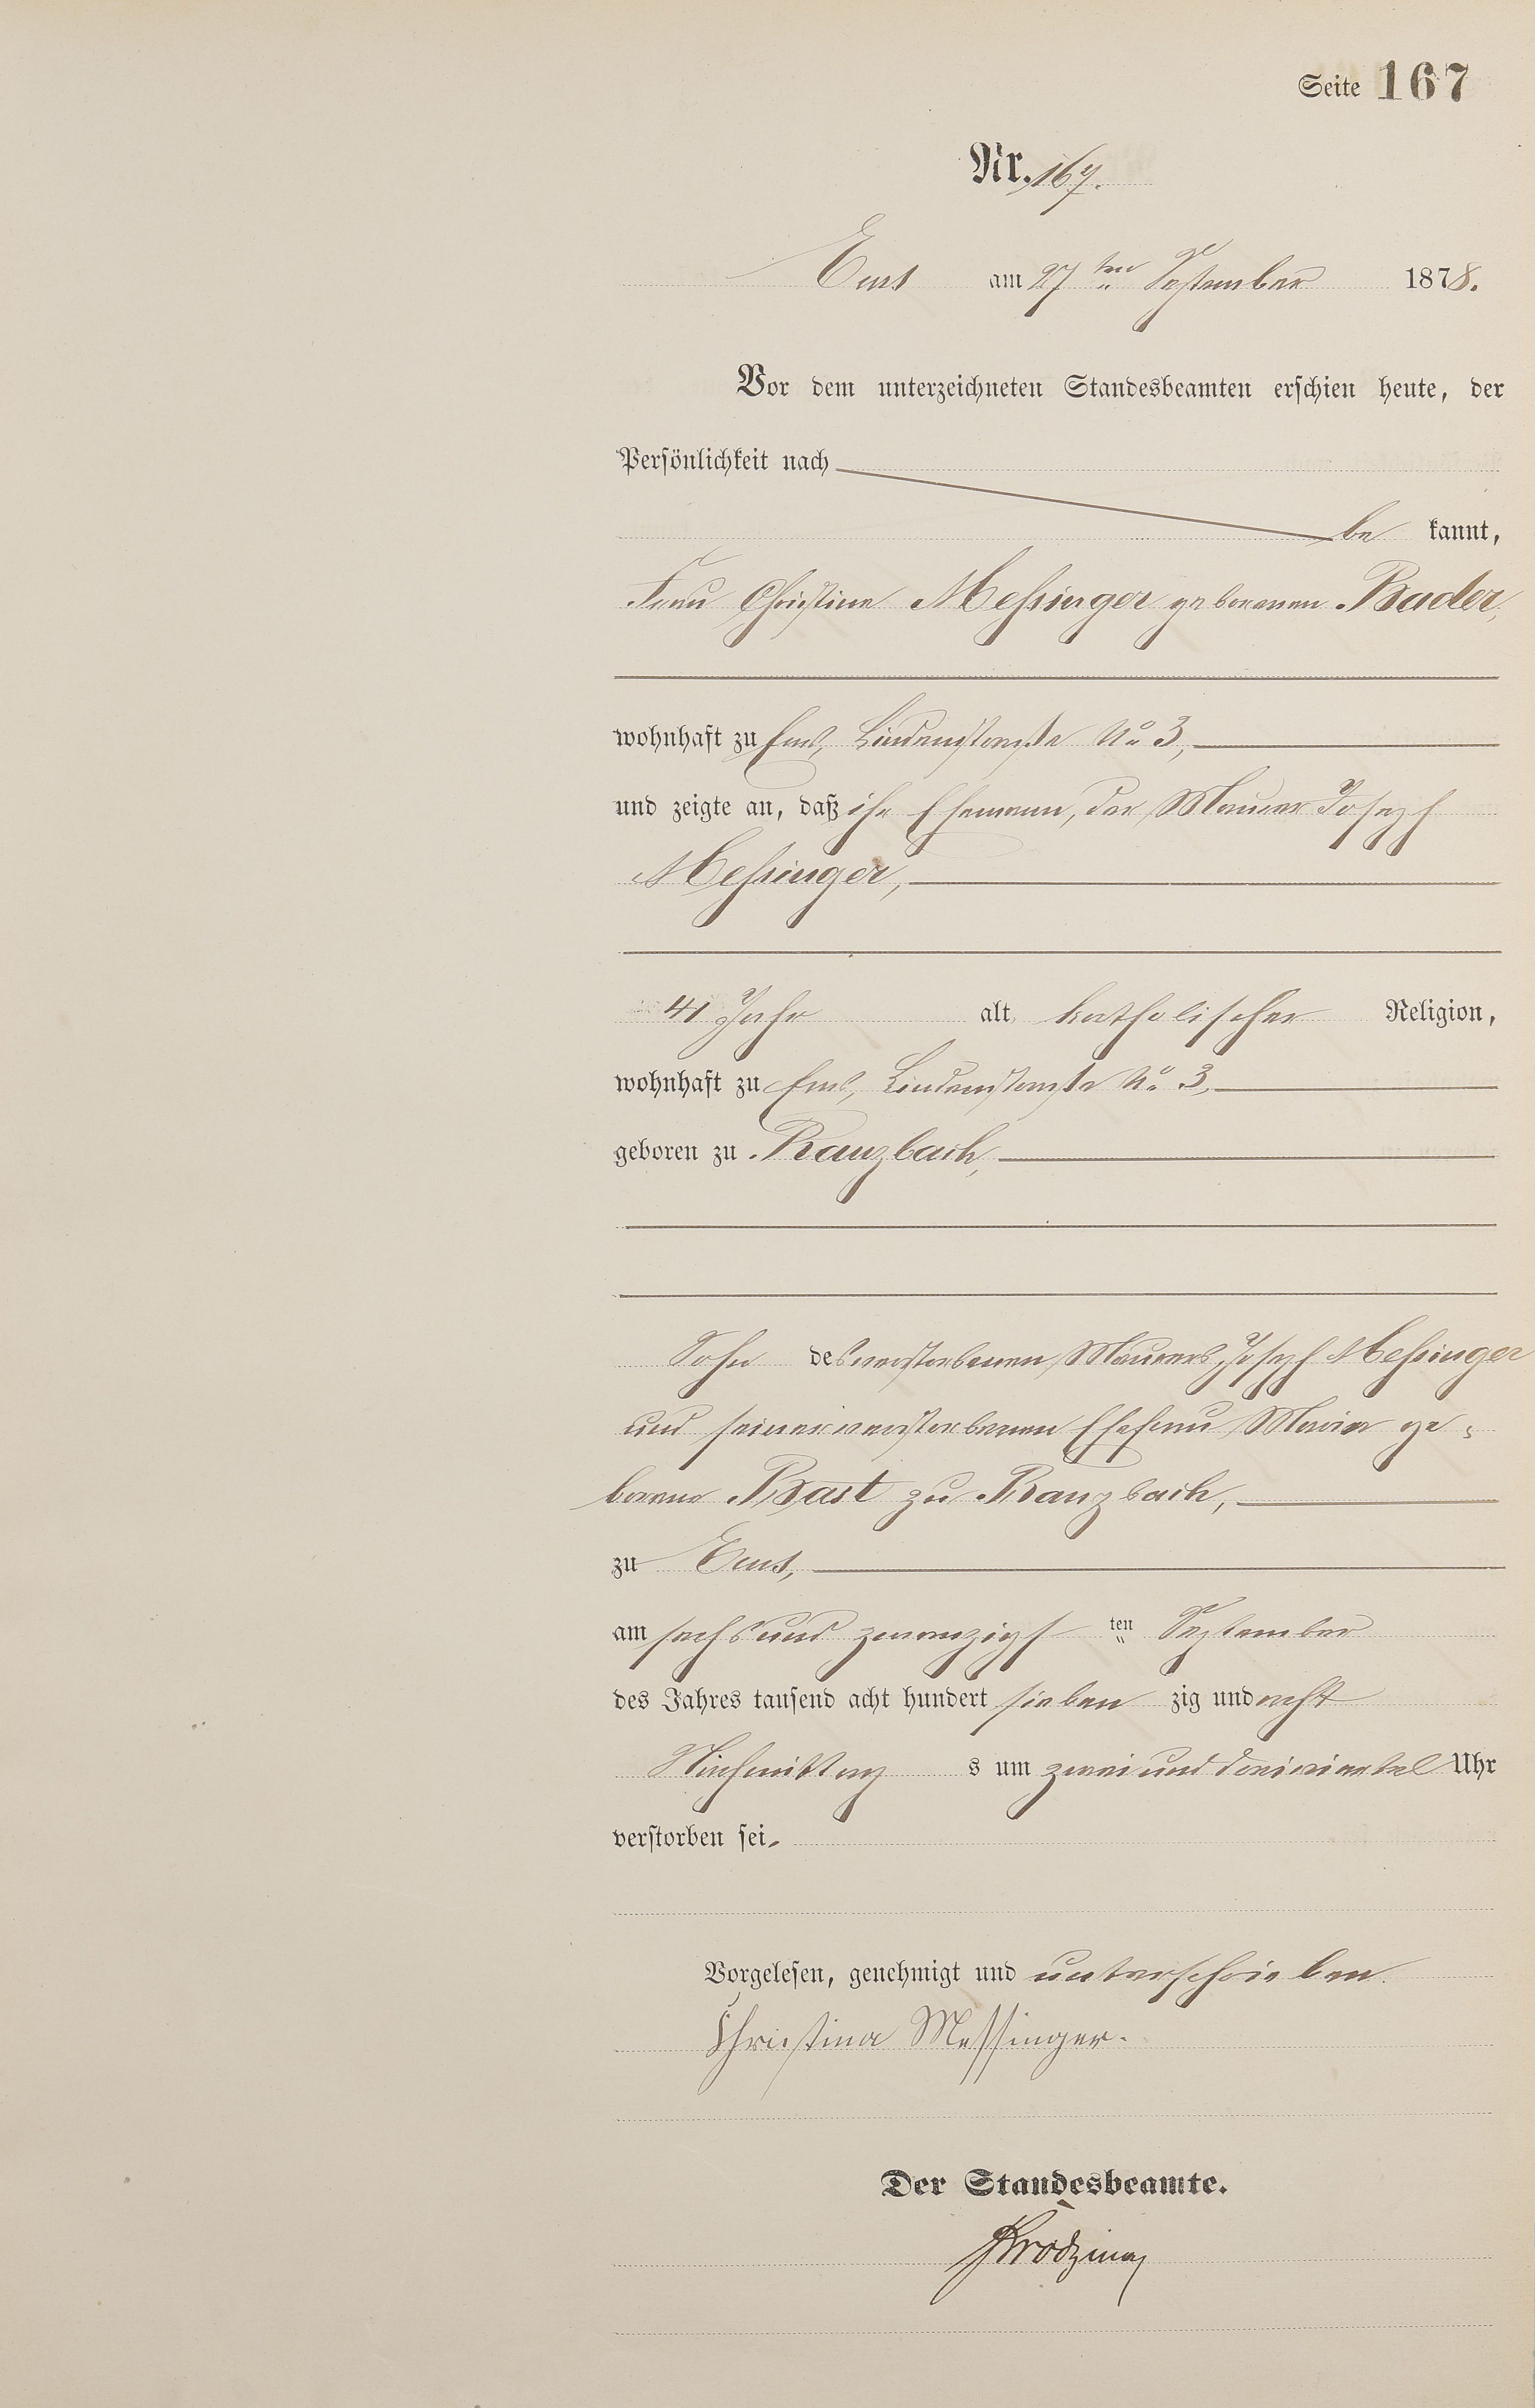 Seite 167
Nr. 167.
Ems am 27ten September 1878.
Vor dem unterzeichneten Standesbeamten erschien heute, der
Persönlichkeit nach
be kannt,
Frau Christine Meßinger geborenen Bader,
wohnhaft zu Ems, Lindenstraße No 3,
und zeigte an, daß ihr Ehemann, der Maurer Joseph
Meßinger,
41 Jahr alt, katholischer Religion,
wohnhaft zu Ems, Lindenstraße No 3,
geboren zu Ranzbach,
Sohn des verstorbenen Maurers Joseph Meßinger
und seiner verstorbenen Ehefrau Maria ge-
borene Bast zu Ranzbach,
zu Ems,
am sechs und zwanzigs ten September
des Jahres tausend acht hundert sieben zig und acht
Nachmittag s um zwei und dreiviertel Uhr
verstorben sei.
Vorgelesen, genehmigt und unterschrieben.
Christina Messinger.
Der Standesbeamte.